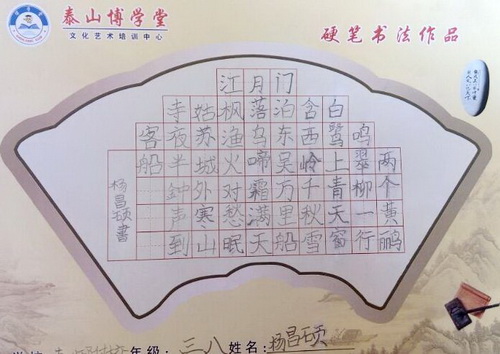 泰山博学堂
文化艺术培训中心
硬笔书法作品
两个黄鹂
鸣翠柳一行
白鹭上青天窗
含西岭千秋雪
门泊东吴万里船
月落乌啼霜满天
江枫渔火对愁眠
姑苏城外寒山
寺夜半鈡声到
客船
杨昌硕書
年级：三八 姓名：杨昌硕